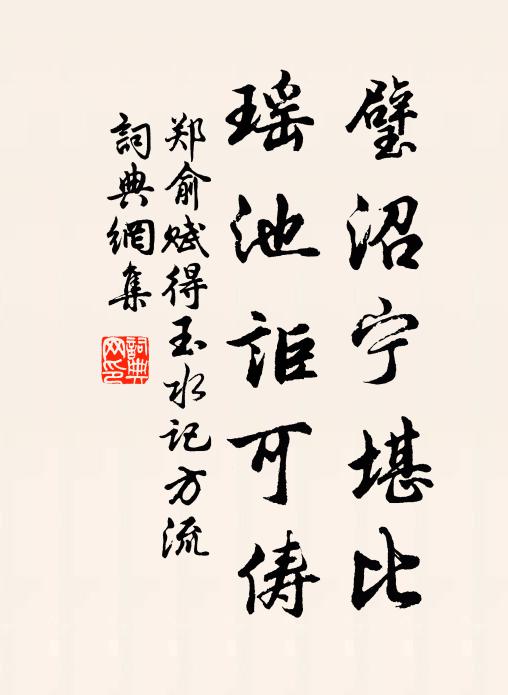 璧沼宁堪比
瑶池詎可俦
郑俞赋得玉水记方流
詞典網集
詞典网印